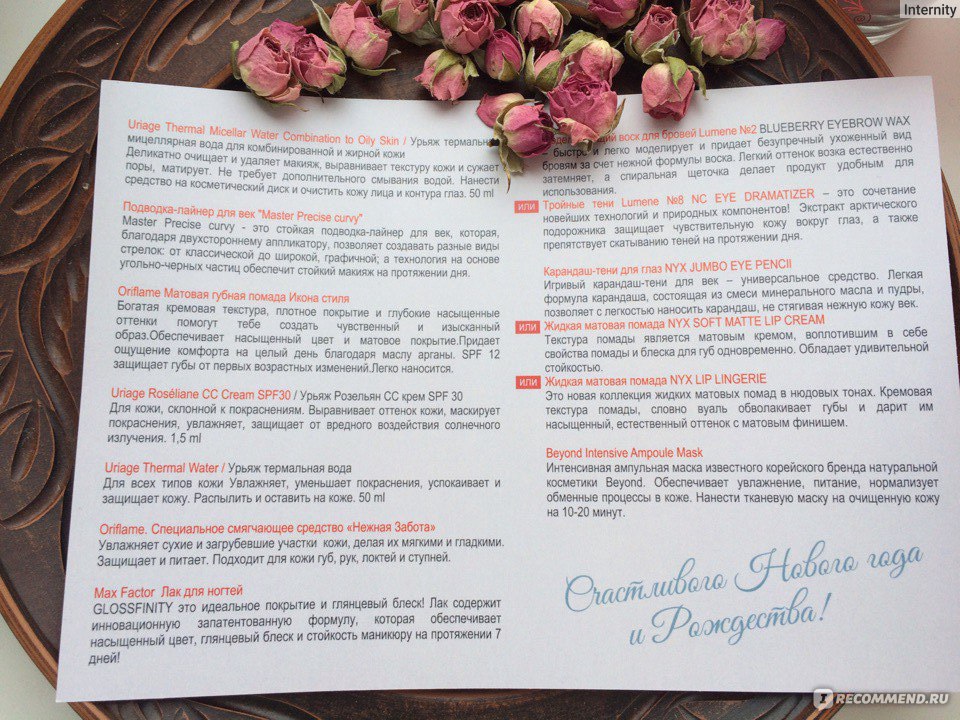 Internity
Uriage Thermal Micellar Water Combination to Oily Skin / Урьяж термальная
мицеллярная вода для комбинированной и жирной кожи
Деликатно очищает и удаляет макияж, выравнивает текстуру кожи и сужает
поры, матирует. Не требует дополнительного смывания водой. Нанести
средство на косметический диск и очистить кожу лица и контура глаз. 50 ml
Подводка-лайнер для век "Master Precise curvy"
Master Precise curvy - это стойкая подводка-лайнер для век, которая,
благодаря двухстороннему аппликатору, позволяет создавать разные виды
стрелок: от классической до широкой, графичной; а технология на основе
угольно-черных частиц обеспечит стойкий макияж на протяжении дня.
Oriflame Матовая губная помада Икона стиля
Богатая кремовая текстура, плотное покрытие и глубокие насыщенные
оттенки помогут тебе создать чувственный и изысканный
образ.Обеспечивает насыщенный цвет и матовое покрытие.Придает
ощущение комфорта на целый день благодаря маслу арганы. SPF 12
защищает губы от первых возрастных изменений.Легко наносится.
Uriage Roséliane CC Cream SPF30 / Урьяж Розельян СС крем SPF 30
Для кожи, склонной к покраснениям. Выравнивает оттенок кожи, маскирует
покраснения, увлажняет, защищает от вредного воздействия солнечного
излучения. 1,5 ml
Uriage Thermal Water / Урьяж термальная вода
Для всех типов кожи Увлажняет, уменьшает покраснения, успокаивает и
защищает кожу. Распылить и оставить на коже. 50 ml
Oriflame. Специальное смягчающее средство «Нежная Забота»
Увлажняет сухие и загрубевшие участки кожи, делая их мягкими и гладкими.
Защищает и питает. Подходит для кожи губ, рук, локтей и ступней.
Max Factor Лак для ногтей
GLOSSFINITY это идеальное покрытие и глянцевый блеск! Лак содержит
инновационную запатентованную формулу, которая обеспечивает
насыщенный цвет, глянцевый блеск и стойкость маникюру на протяжении 7
дней!
воск для бровей Lumene №2 BLUEBERRY EYEBROW WAX
быстро и легко моделирует и придает безупречный ухоженный вид
бровям за счет нежной формулы воска. Легкий оттенок воска естественно
затемняет, а спиральная щеточка делает продукт удобным для
использования.
или Тройные тени Lumene №8 NC EYE DRAMATIZER – это сочетание
новейших технологий и природных компонентов! Экстракт арктического
подорожника защищает чувствительную кожу вокруг глаз, а также
препятствует скатыванию теней на протяжении дня.
Карандаш-тени для глаз NYX JUMBO EYE PENCIl
Игривый карандаш-тени для век – универсальное средство. Легкая
формула карандаша, состоящая из смеси минерального масла и пудры,
позволяет с легкостью наносить карандаш, не стягивая нежную кожу век.
или Жидкая матовая помада NYX SOFT MATTE LIP CREAM
Текстура помады является матовым кремом, воплотившим в себе
свойства помады и блеска для губ одновременно. Обладает удивительной
стойкостью.
или Жидкая матовая помада NYX LIP LINGERIE
Это новая коллекция жидких матовых помад в нюдовых тонах. Кремовая
текстура помады, словно вуаль обволакивает губы и дарит им
насыщенный, естественный оттенок с матовым финишем.
Beyond Intensive Ampoule Mask
Интенсивная ампульная маска известного корейского бренда натуральной
косметики Beyond. Обеспечивает увлажнение, питание, нормализует
обменные процессы в коже. Нанести тканевую маску на очищенную кожу
на 10-20 минут.
Счастливого Нового года
и Рождества!
I RECOMMEND.RU